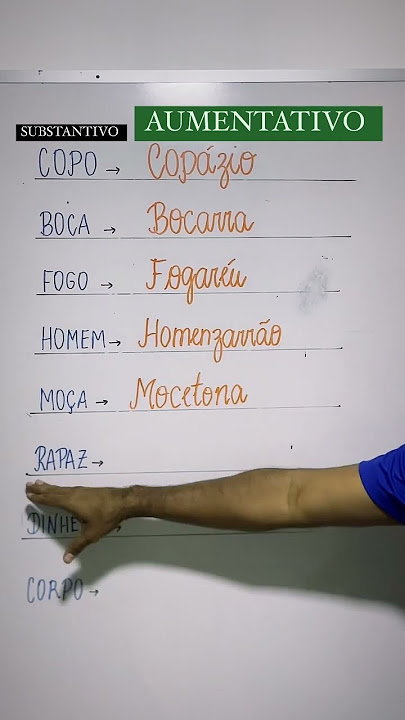 SUBSTANTIVO AUMENTATIVO
COPO → Copázio
BOCA → Bocarra
FOGO → Fogaréu
HOMEM → Homenzarrão
MOÇA → Mocetona
RAPAZ →
CORPO →